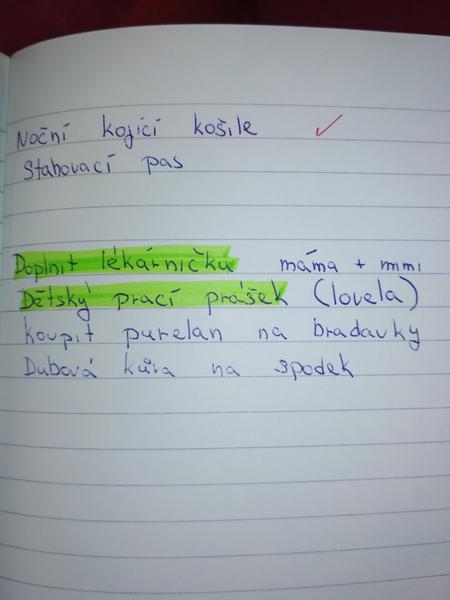 Noční kojící košile
Stahovací pas
Doplnit lékárničku máma + mimi
Dětský prací prášek (lovela)
koupit purelan na bradavky
Dubová kůra na spodek